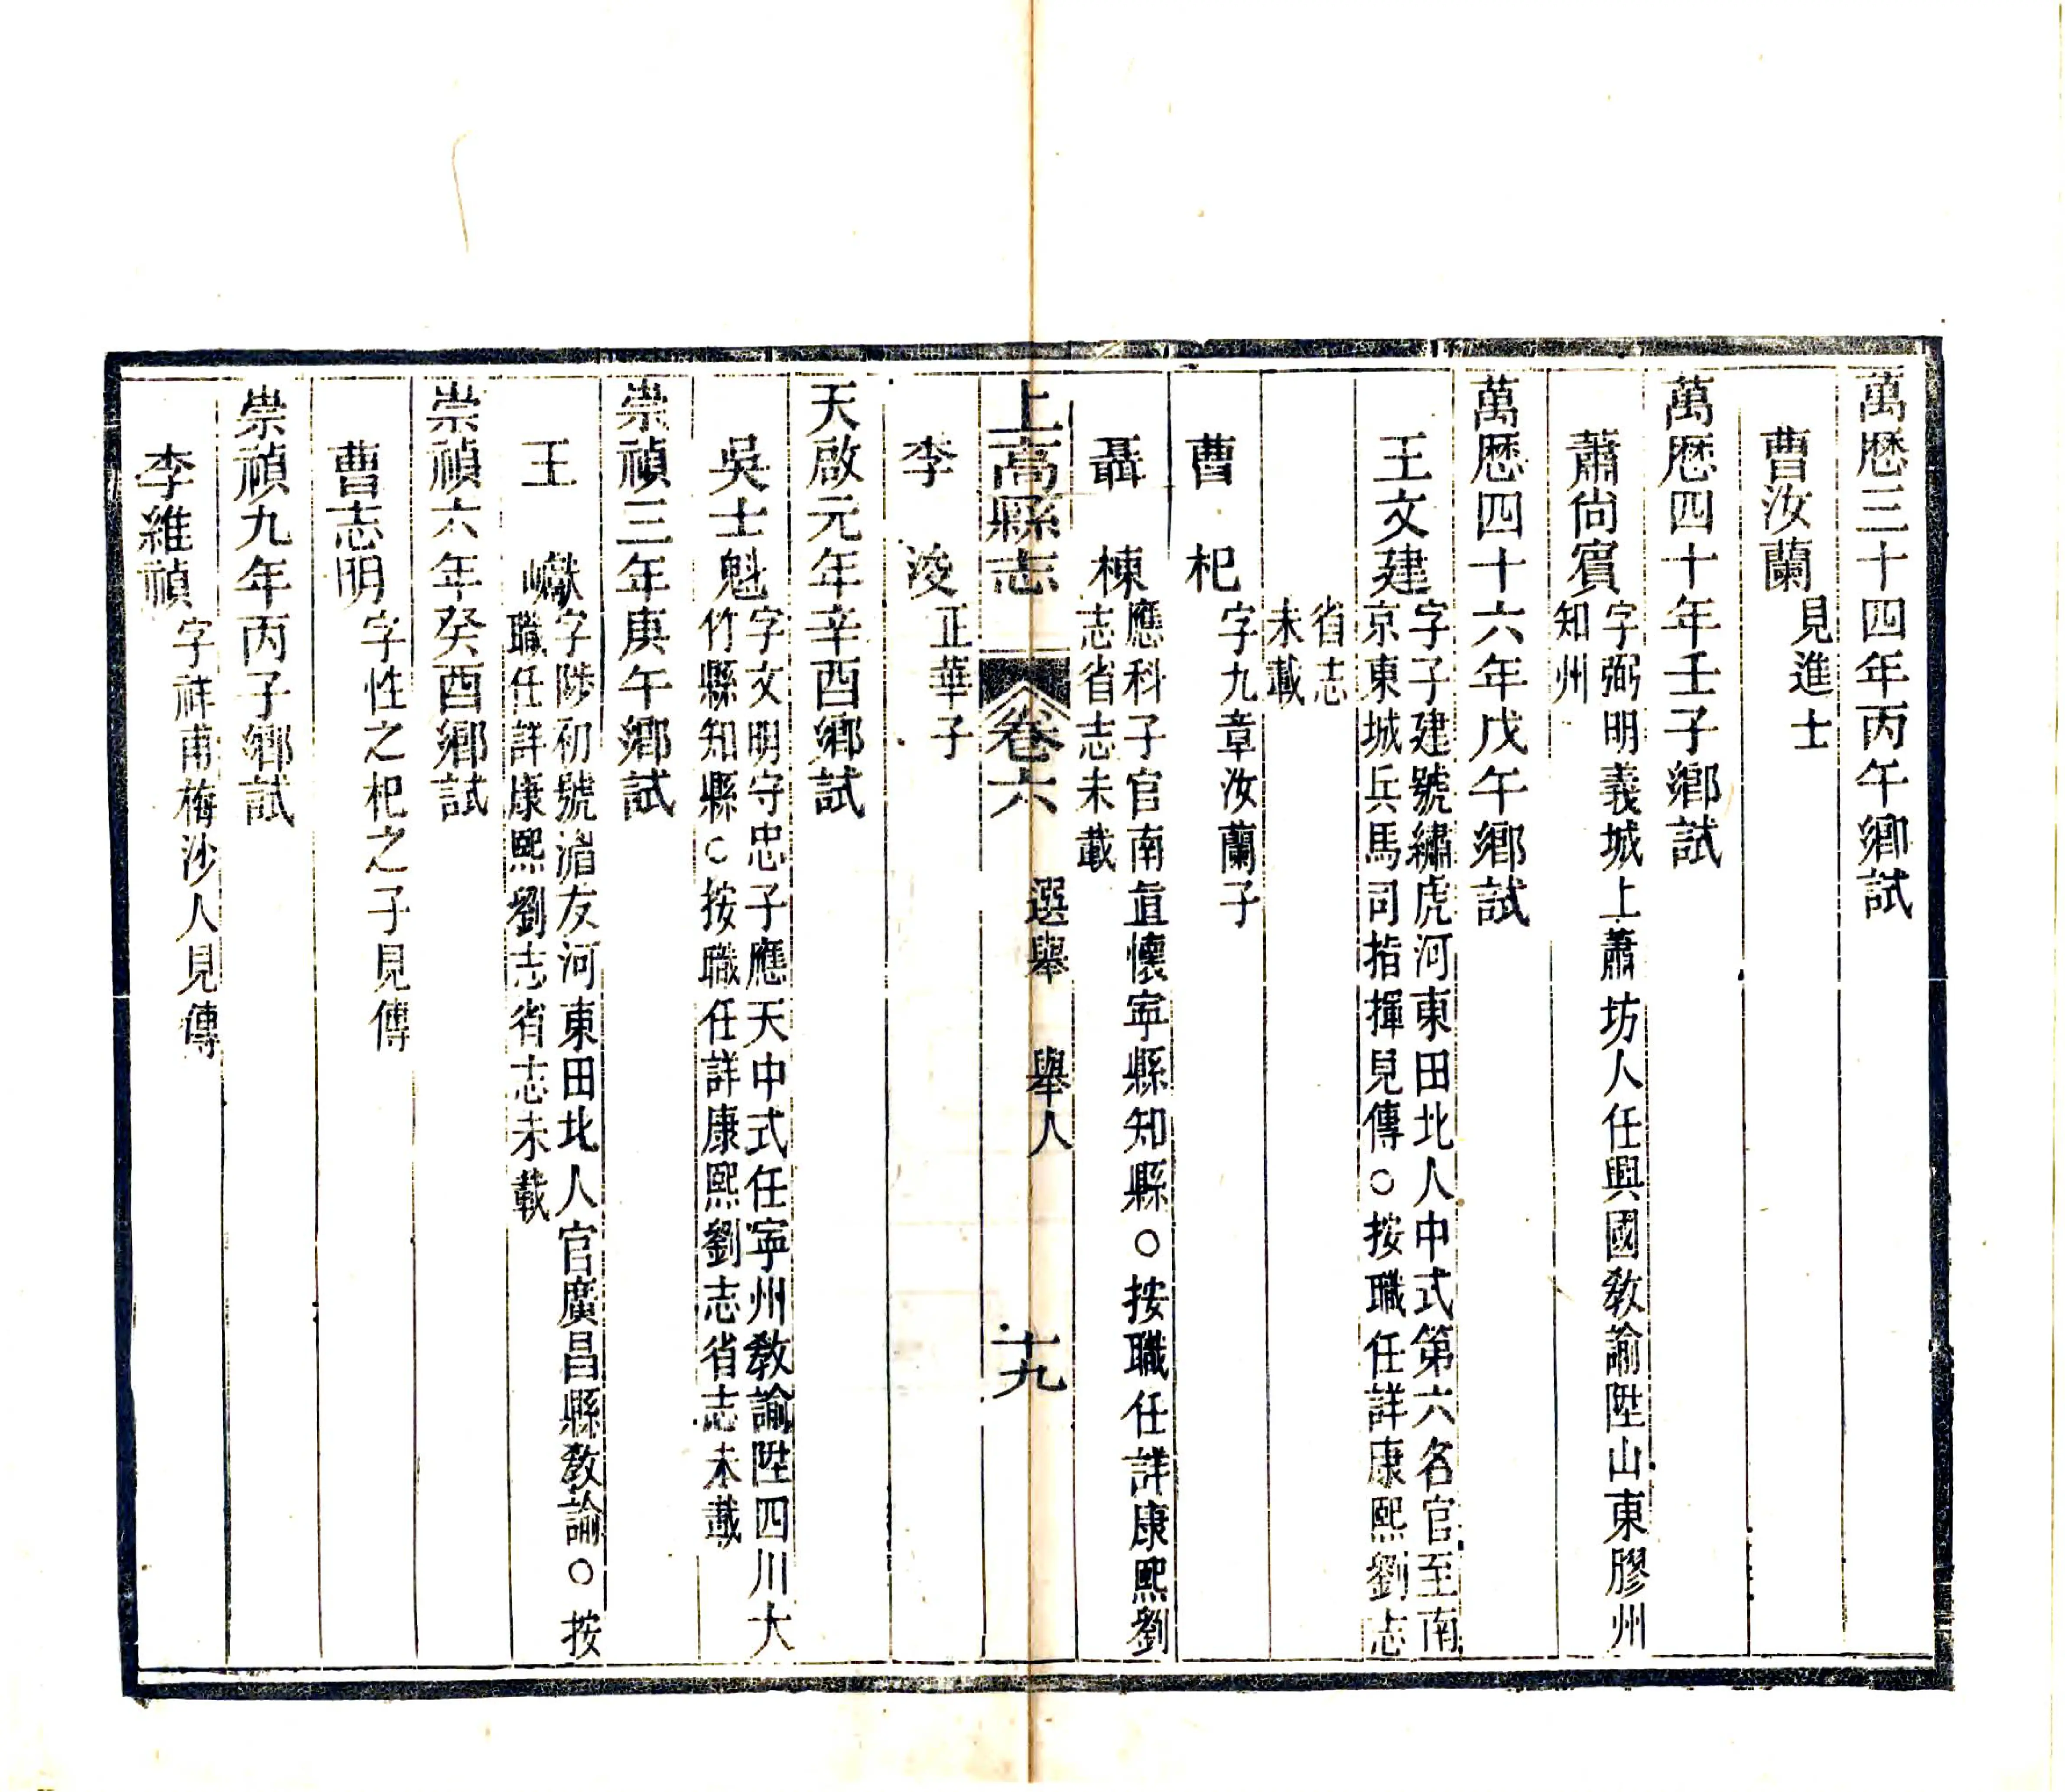 萬厯三十四年丙午鄉試
曹汝蘭見進士
萬厯四十年壬子鄉試
蕭尙賓字弼明義城上蕭坊人任興國敎諭陞山東膠州
知州
萬厯四十六年戊午鄉試
王文建字子建號繡虎河東田北人中式第六名官至南
京東城兵馬司指揮見傳○按職任詳康熙劉志
省志
未載
曹杞字九章汝蘭子
聶棟應科子官南直懷寧縣知縣○按職任詳康熙劉
志省志未載
上高縣志 卷六 選舉 舉人 十九
李浚正華子
天啟元年辛酉鄉試
吳士魁字文明守忠子應天中式任寧州敎諭陞四川大
竹縣知縣○按職任詳康熙劉志省志未載
崇禎三年庚午鄉試
王巘字陟初號湄友河東田北人官廣昌縣敎諭○按
職任詳康熙劉志省志未載
崇禎六年癸酉鄉試
曹志明字性之杞之子見傳
崇禎九年丙子鄉試
李維禎字祥甫梅沙人見傳